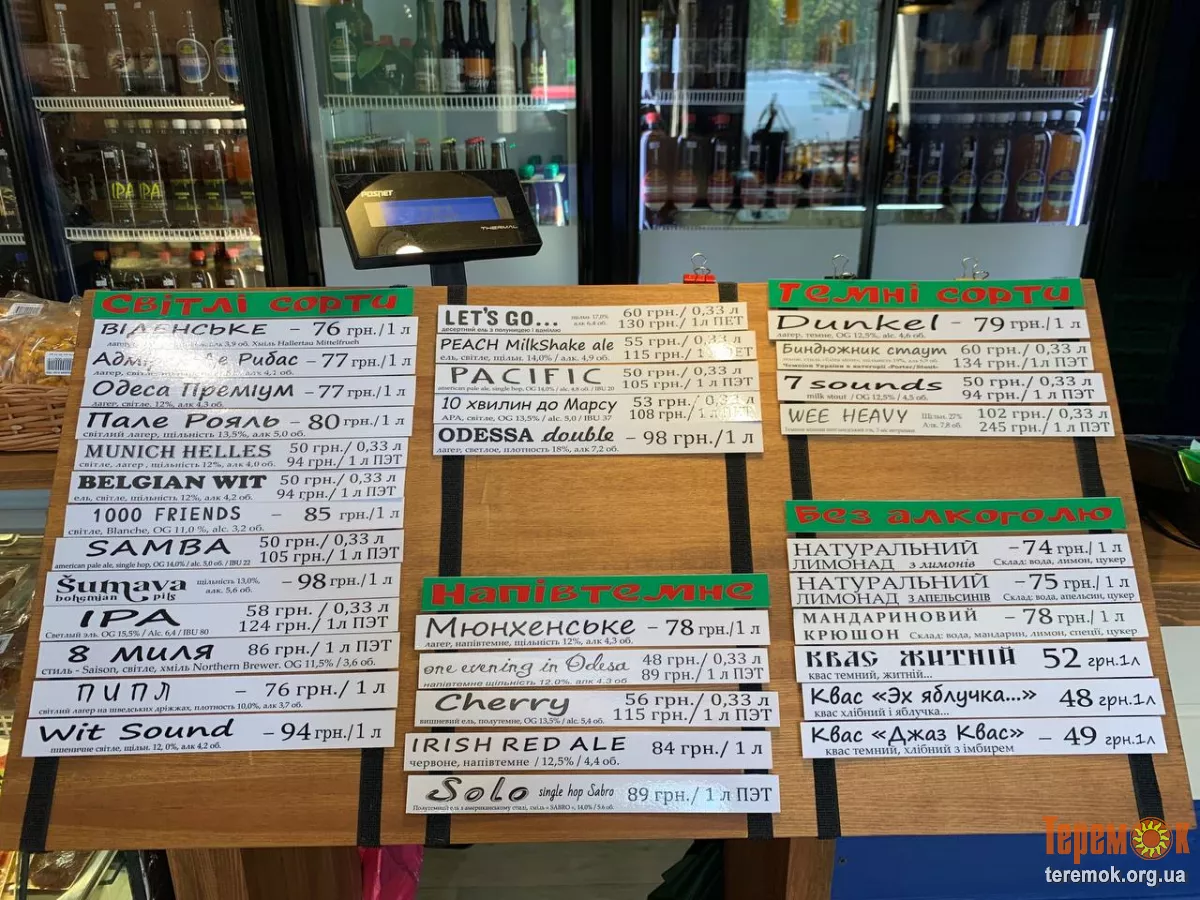 POSNET
THERMAL
IPA IPA
Світлі сорти
ВІДЕНСЬКЕ – 76 грн./1 л
3,9 об. Хміль Hallertau Mittelfrueh
Адмірал де Рибас – 77 грн./1 л
Одеса Преміум – 77 грн./1 л
лагер, світле. 12%, алк 4,3 об.
Пале Рояль – 80 грн./1 л
світлий лагер, щільність 13,5%, алк 5,0 об.
MUNICH HELLES 50 грн./ 0,33 л
94 грн./ 1 л ПЭТ
світле, лагер , щільність 12%, алк 4,0 об.
BELGIAN WIT 50 грн./ 0,33 л
94 грн./ 1 л ПЭТ
ель, світле, щільність 12%, алк 4,2 об.
1000 FRIENDS – 85 грн./1 л
світле, Blanche, OG 11,0 %, alc. 3,2 об.
SAMBA 50 грн./ 0,33 л
105 грн./ 1 л ПЭТ
american pale ale, single hop, OG 14,0% / alc. 5,0 об. / IBU 22
Šumava щільність 13,0%, – 98 грн./1 л
bohemian pils алк. 5,6 об.
IPA 58 грн./ 0,33 л
124 грн./ 1 л ПЭТ
Светлый эль. OG 15,5% / Alc. 6,4 / IBU 80
8 МИЛЯ 86 грн./ 1 л ПЭТ
стиль - Saison, світле, хміль Northern Brewer. OG 11,5% / 3,6 об.
ПИПЛ – 76 грн./ 1 л
світлий лагер на шведських дріжжах, плотность 10,0%, алк 3,7 об.
Wit Sound – 94 грн./1 л
пшеничне світле, щільн. 12, 0%, алк 4,2 об.
LET'S GO... щільн. 17,0% 60 грн./ 0,33 л
алк 6,4 об. 130 грн./ 1л ПЕТ
десертний ель з полуницею і ваніллю
PEACH MilkShake ale 55 грн./ 0,33 л
115 грн./ 1 л ПЕТ
ель, світле, щільн. 14,0% / алк. 4,9 об.
PACIFIC 50 грн./ 0,33 л
105 грн./ 1 л ПЭТ
american pale ale, single hop, OG 14,0% / алк. 4,8 об. / IBU 20
10 хвилин до Марсу 53 грн./ 0,33 л
108 грн./ 1 л ПЭТ
APA, світле, OG 13,5% / alc. 5,0 / IBU 37
ODESSA double – 98 грн./1 л
лагер, светлое, плотность 18%, алк 7,2 об.
Напівтемне
Мюнхенське – 78 грн./1 л
лагер, напівтемне, щільність 12%, алк 4,3 об.
one evening in Odesa 48 грн./ 0,33 л
89 грн./ 1 л ПЭТ
напівтемне щільність 12.0%. алк 4.3 об
Cherry 56 грн./ 0,33 л
115 грн./ 1 л ПЭТ
вишневий ель, полутемне, OG 13,5% / alc. 5,4 об.
IRISH RED ALE 84 грн./ 1 л ПЭТ
червоне, напівтемне / 12,5% / 4,4 об.
Solo single hop Sabro 89 грн./ 1 л ПЭТ
Полутемний ель з американському стилі, хміль « SABRO », 14,0% / 5.6 об.
Темні сорти
Dunkel – 79 грн./1 л
лагер, темне, OG 12,5%, alc. 4,6 об.
Биндюжник стаут 60 грн./ 0,33 л
134 грн./ 1 л ПЭТ
Чемпіон України в категорії «Porter/Stout»
7 sounds 50 грн./ 0,33 л
94 грн./ 1 л ПЭТ
milk stout / OG 12,5% / 4,5 об.
WEE HEAVY Щільн. 27% 102 грн./ 0,33 л
Алк. 7,8 об. 245 грн./ 1 л ПЭТ
Без алкоголю
НАТУРАЛЬНИЙ – 74 грн./ 1 л
ЛИМОНАД з лимонів Склад: вода, лимон, цукер
НАТУРАЛЬНИЙ – 75 грн./ 1 л
ЛИМОНАД З АПЕЛЬСИНІВ Склад: вода, апельсин, цукер
МАНДАРИНОВИЙ – 78 грн./ 1 л
КРЮШОН Склад: вода, мандарин, лимон, спеції, цукер
КВАС ЖИТНІЙ 52 грн.1л
квас темний, житній...
Квас «Эх яблучка...» 48 грн.1л
квас хлібний і яблучка...
Квас «Джаз Квас» – 49 грн.1л
квас темний, хлібний з імбирем
Теремок
teremok.org.ua